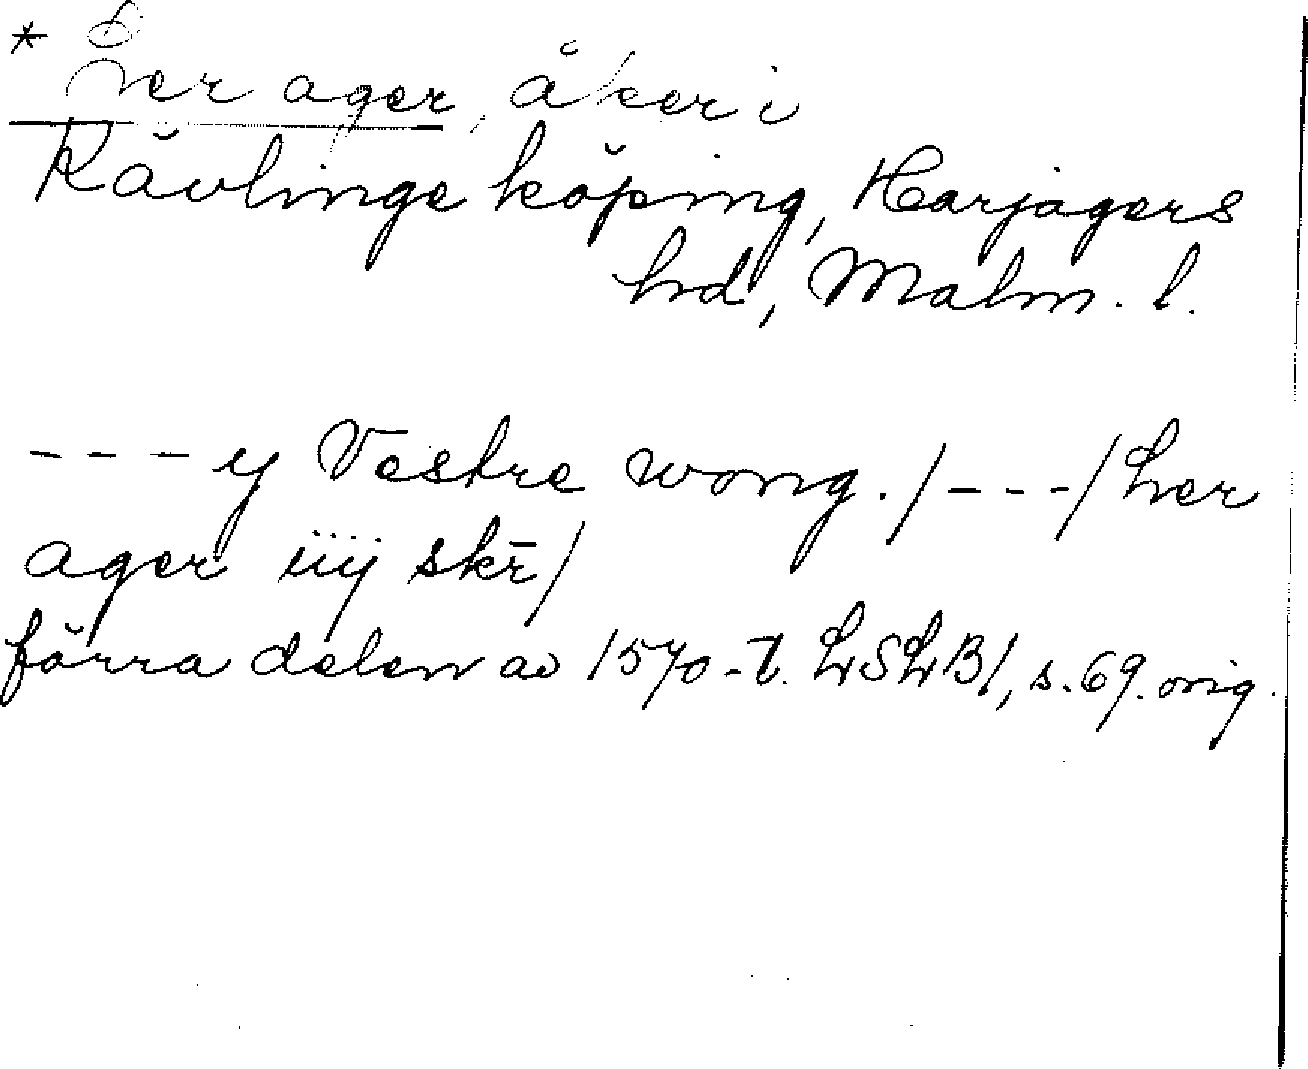 * Över ager, åker i
Kävlinge köping, Harjagers
hd, Malm. l.
---y Vestre wong. /---/ her
ager iiij skr̄/
förra delen av 1570-t. LSLB1, s. 69. orig.